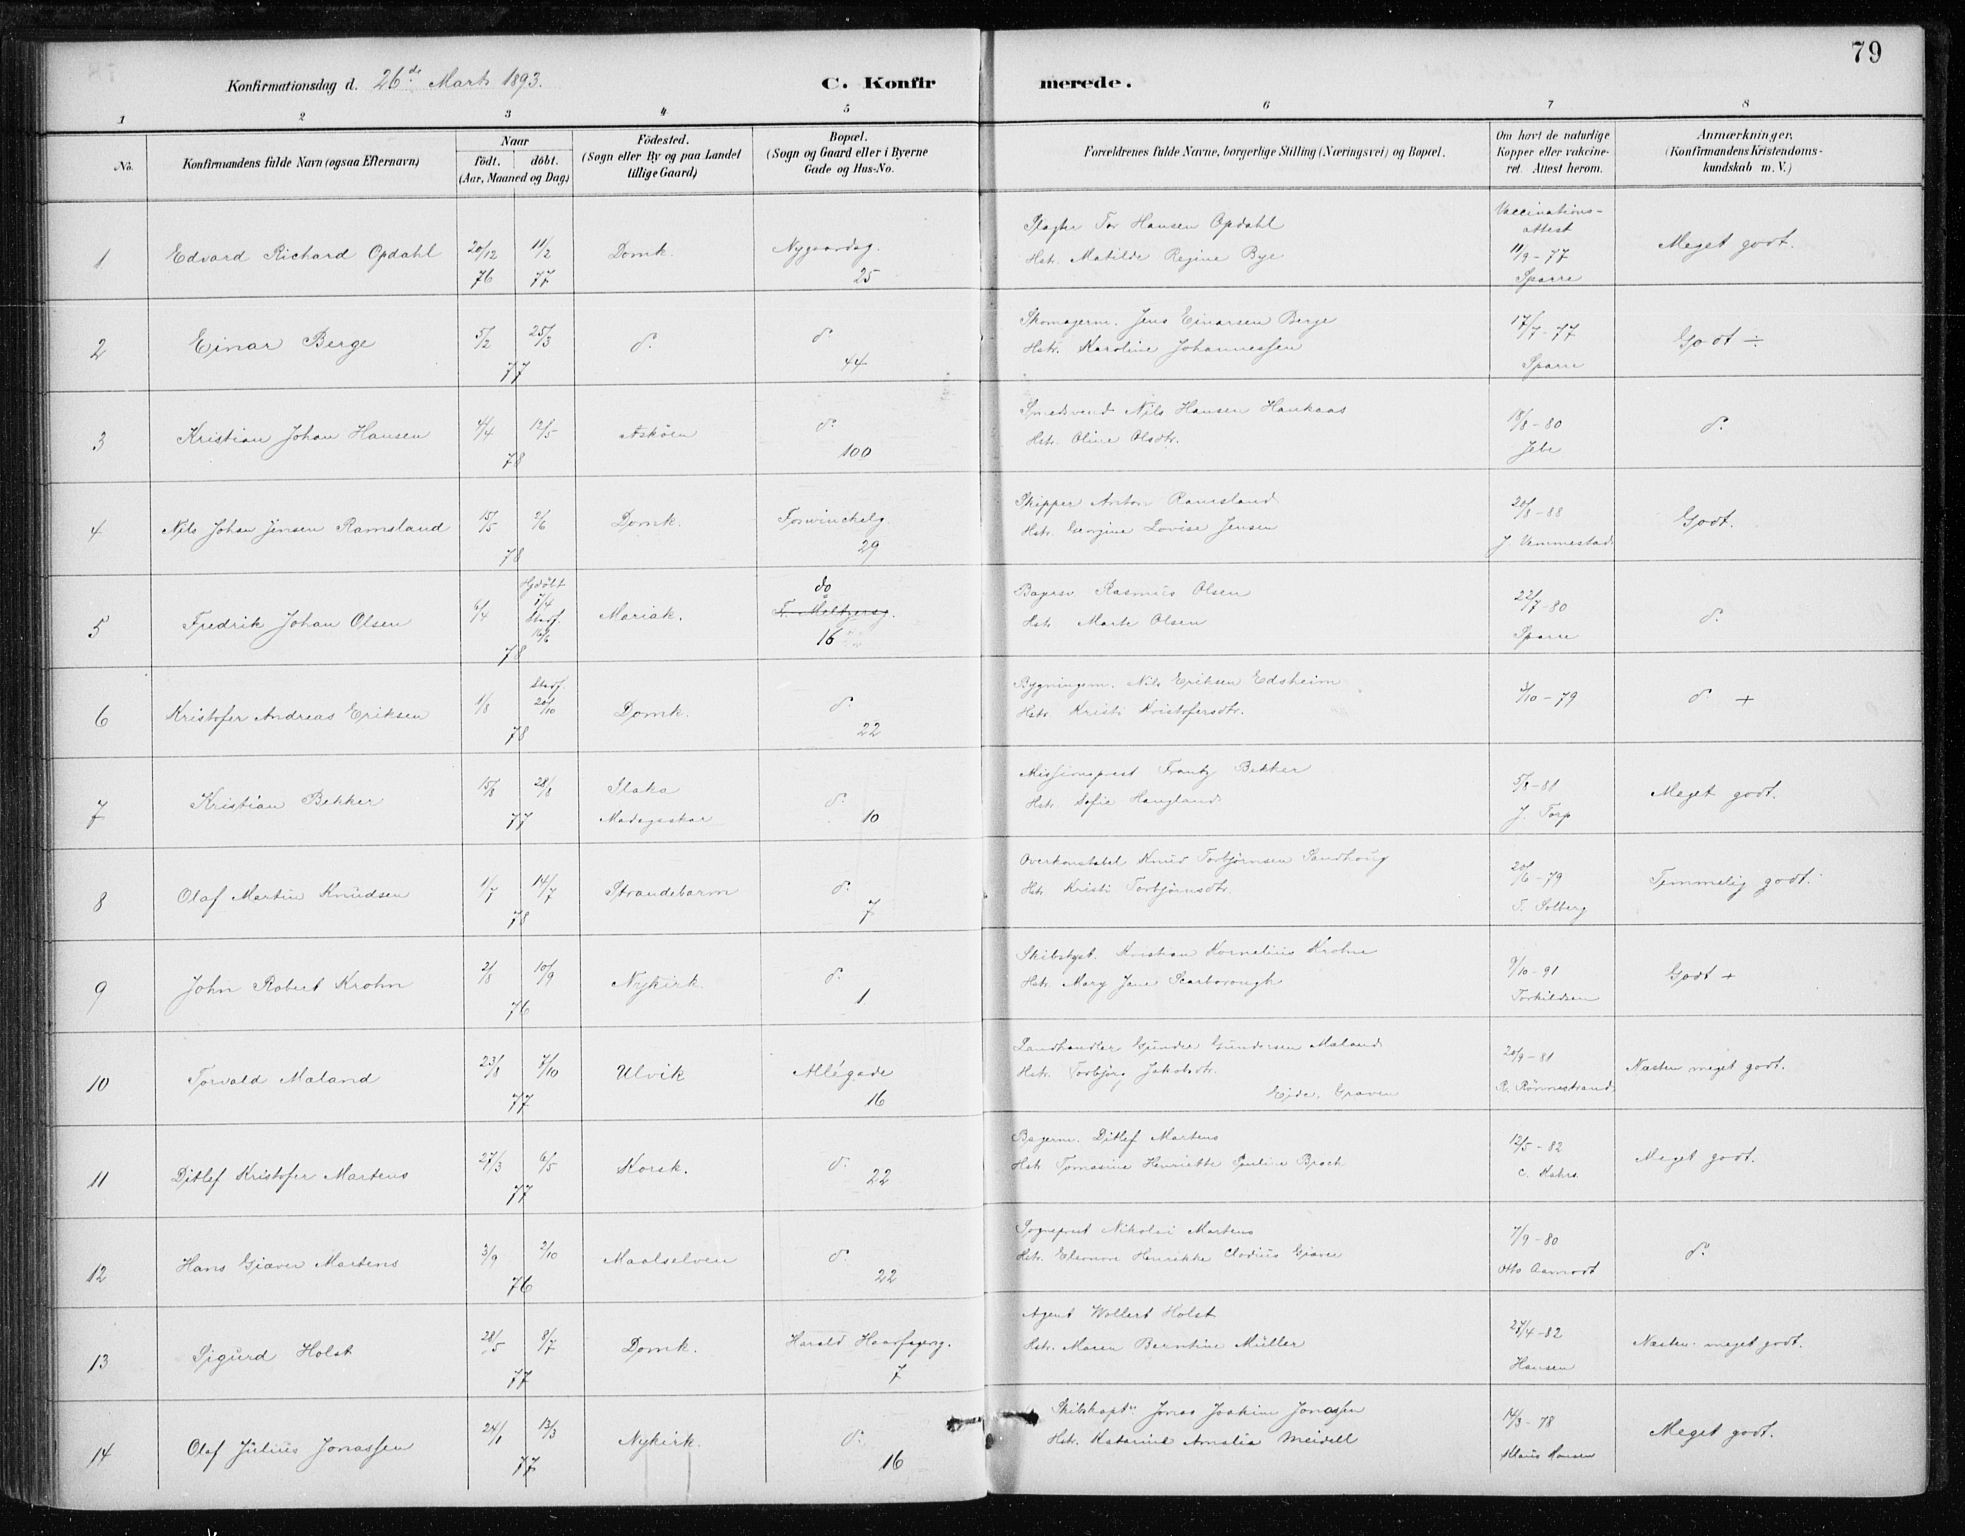 79
Konfirmationsdag d. 26de Marts 1893.
C. Konfirmerede.
1 2 3 4 5 6 7 8
No.
Konfirmandens fulde Navn (ogsaa Efternavn)
Naar
födt. döbt.
(Aar, Maaned og Dag)
Födested.
(Sogn eller By og paa Landet
tillige Gaard)
Bopæl.
(Sogn og Gaard eller i Byerne
Gade og Hus-No.
Forældrenes fulde Navne, borgerlige Stilling (Næringsvei) og Bopæl.
Om havt de naturlige
Kopper eller vakcine-
ret. Attest herom.
Anmærkninger.
(Konfirmandens Kristendoms-
kundskab m. V.)
1 Edvard Richard Opdahl 20/12 76 11/2 77 Domk. Nygaardsg. 25
Slagter Tor Hansen Opdahl
Hstr. Matilde Regine Bye
Vaccinations-
attest
11/9 - 77
Sparre
Meget godt.
2 Einar Berge 5/2 25/3 77 d. d. 44
Skomagerm. Jens Einarsen Berge
Hstr. Karoline Johannessen
17/7 - 77
Sparre
Godt ÷
3 Kristian Johan Hansen 4/4 12/5 78 Asköen d. 100
Smedsvend Nils Hansen Haukaas
Hstr. Oline Olsdtr.
18/8 - 80
Jebe
d.
4 Nils Johan Jensen Ramsland 15/5 2/6 78 Domk. Torvinckelg. 29
Skipper Anton Ramsland
Hstr. Georgine Lovise Jensen
20/8 - 88
J. Vemmestad.
Godt.
5 Fredrik Johan Olsen 6/4 Hjdöbt 7/4 Stadf. 16/6 78 Mariak. do
16
Rasmus Olsen
Hstr. Marte Olsen
22/7 - 80
Sparre
d.
6 Kristofer Andreas Eriksen 1/8 Stadf. 20/10 78 Domk. d. 22
Bygningsm. Nils Eriksen Edsheim
Hstr. Kristi Kristofersdtr.
3/10 - 79
d. +
7 Kristian Bekker 15/8 28/8 77 Ilaka
Madagaskar d. 10
Missionsprest Frantz Bekker
Hstr. Sofie Haugland.
5/8 - 81
J. Torp
Meget godt.
8 Olaf Martin Knudsen 1/7 14/7 78 Strandebarm d. 7
Overkonstabel Knud Torbjörnsen Sandhoug
Hstr. Kristi Torbjörnsdtr.
20/6 - 79
T. Solberg
Temmelig godt.
9 John Robert Krohn 2/8 10/9 76 Nykirk. d. 1
Kristian Kornelius Krohn
Hstr. Mary Jane Scarborough
9/10 - 91
Torkildsen
Godt +
10 Torvald Maland 23/8 7/10 77 Ulvik Allégade 16
Landhandler Gunder Gundersen Maland
Hstr. Torbjörg Jakobsdtr.
Ejde, Graven
20/9 - 81
R. Rönnestrand
Næsten meget godt.
11 Ditlef Kristofer Martens 27/3 6/5 77 Korsk. d. 22
Bagerm. Ditlef Martens
Hstr. Tomasine Henriette Pauline Broch
12/5 - 82
C. Kahrs.
Meget godt.
12 Hans Giæver Martens 3/9 2/10 76 Maalselven d. 22
Sogneprest Nikolai Martens
Hstr. Eleonore Henrikke Clodius Giæver
7/9 - 80
Otto Aamodt
d.
13 Sigurd Holst 28/5 8/7 77 Domk. Harald Haarfagersg. 7
Agent Wollert Holst
Hstr. Maren Berntine Müller
27/4 - 82
Hansen
Næsten meget godt.
14 Olaf Julius Jonassen 24/1 13/3 77 Nykirk. d. 16
Skibskaptn Jonas Joakim Jonassen
Hstr. Katarine Amalia Meidell
14/3 - 78
Klaus Hansen
Meget godt.